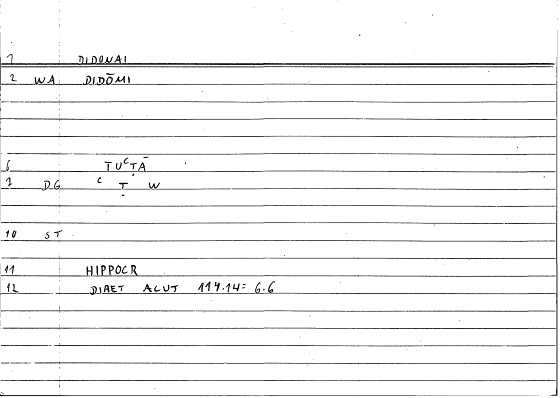 1 DIDONAI
2 WA DIDŌMI
6 TUᶜTĀ
7 DG ᶜ Ṭ W
10 ST
11 HIPPOCR
12 DIAET ACUT 114.14= 6.6